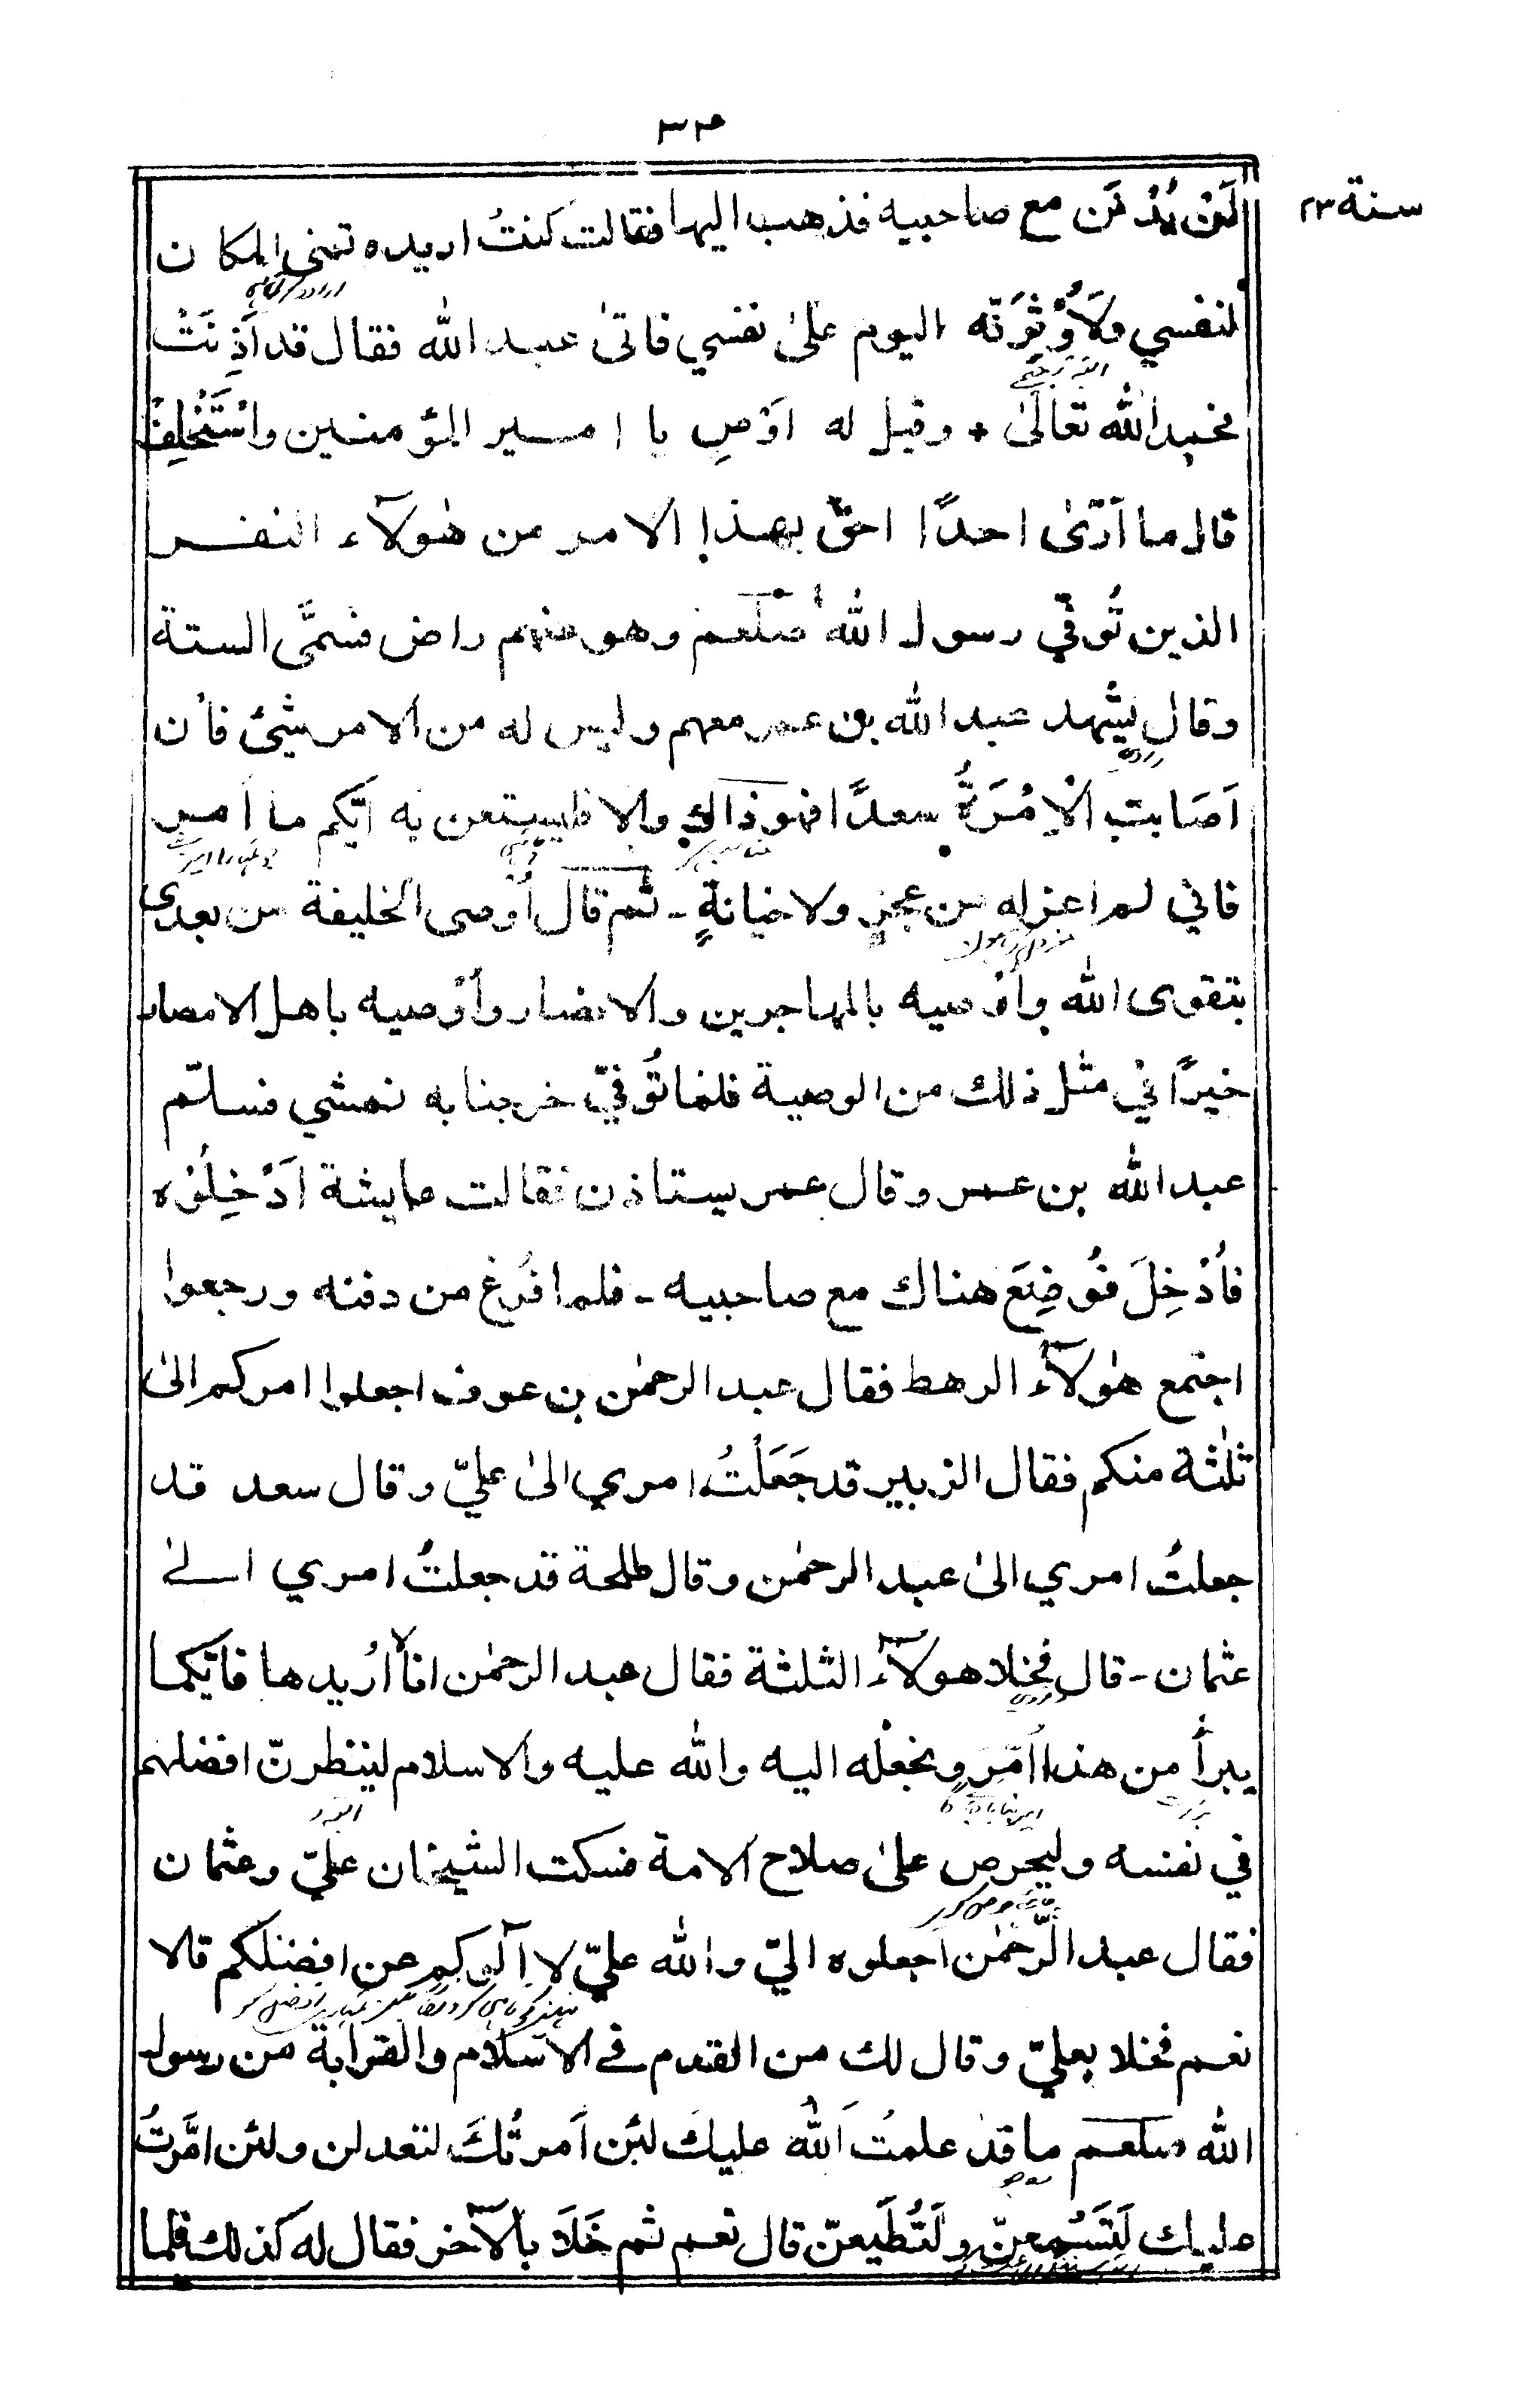 ٣٤
سنة ٢٣
لَمنْ يُدْفَن مع صاحبيه فذهب اليها فقالت كنتُ اريده تعني المكان
لنفسي ولَاُوْثِرَنّه اليوم علىٰ نفسي فاتىٰ عبد الله فقال قد اَذِنَتْ
فحمد الله تعالىٰ + وقيل له اَوْصِ يا امير المؤمنين واسْتَخْلِفْ
قال ما اَرىٰ احدًا احق بهذا الامر من هٰولآء النفر
الذين تُوفّي رسول الله صلعم وهو عنهم راض فسمَّى الستة
وقال يشهد عبد الله بن عمر معهم وليس له من الامر شيئ فأن
اَصَابت الْاِمْرَةُ سعدًا فهو ذاك والا فليستعن به ايّكم ما اُمر
فاني لم اعزله من عجز ولا خيانةٍ ـ ثم قال اُوْصى الخليفة من بعدى
بتقوى الله واُوْصيه بالمهاجرين والانصار واُوْصيه باهل الامصار
خيرًا في مثل ذلك من الوصية فلما تُوفّيَ خرجنا به نمشي فسلّم
عبد الله بن عمر وقال عمر يستاذن فقالت عايشة اَدْخِلُوْه
فأُدْخِلَ فوُضِعَ هناك مع صاحبيه ـ فلما فُرغ من دفنه ورجعوا
اجتمع هٰولآء الرهط فقال عبد الرحمٰن بن عوف اجعلوا امركم الىٰ
ثلٰثة منكم فقال الزبير قد جَعَلْتُ امري الىٰ عليّ وقال سعد قد
جعلتُ امري الىٰ عبد الرحمٰن وقال طلحة قد جعلتُ امري الىٰ
عثمان ـ قال فخلا هولآء الثلثة فقال عبد الرحمٰن انا لا اُريدها فايّكما
يبرأُ من هذا امر ونجعلُه اليه والله عليه والاسلام لينظرنّ افضلهم
في نفسه وليحرص علىٰ صلاح الامة فسكت الشيخان عليّ وعثمان
فقال عبد الرّحمٰن اجعلوه اليّ والله عليّ لا اٰلوكم عن افضلكم قالا
نعم فخلا بعليّ وقال لك من القدم في الاسلام والقرابة من رسول
الله صلعم ما قد علمتَ اللهُ عليك لئن اَمرتُكَ لتعدلن ولئن امَّرتُ
عليك لَتَسْمعنّ ولَتُطيعنّ قال نعم ثم خَلَا بالآخر فقال له كذلك فلما